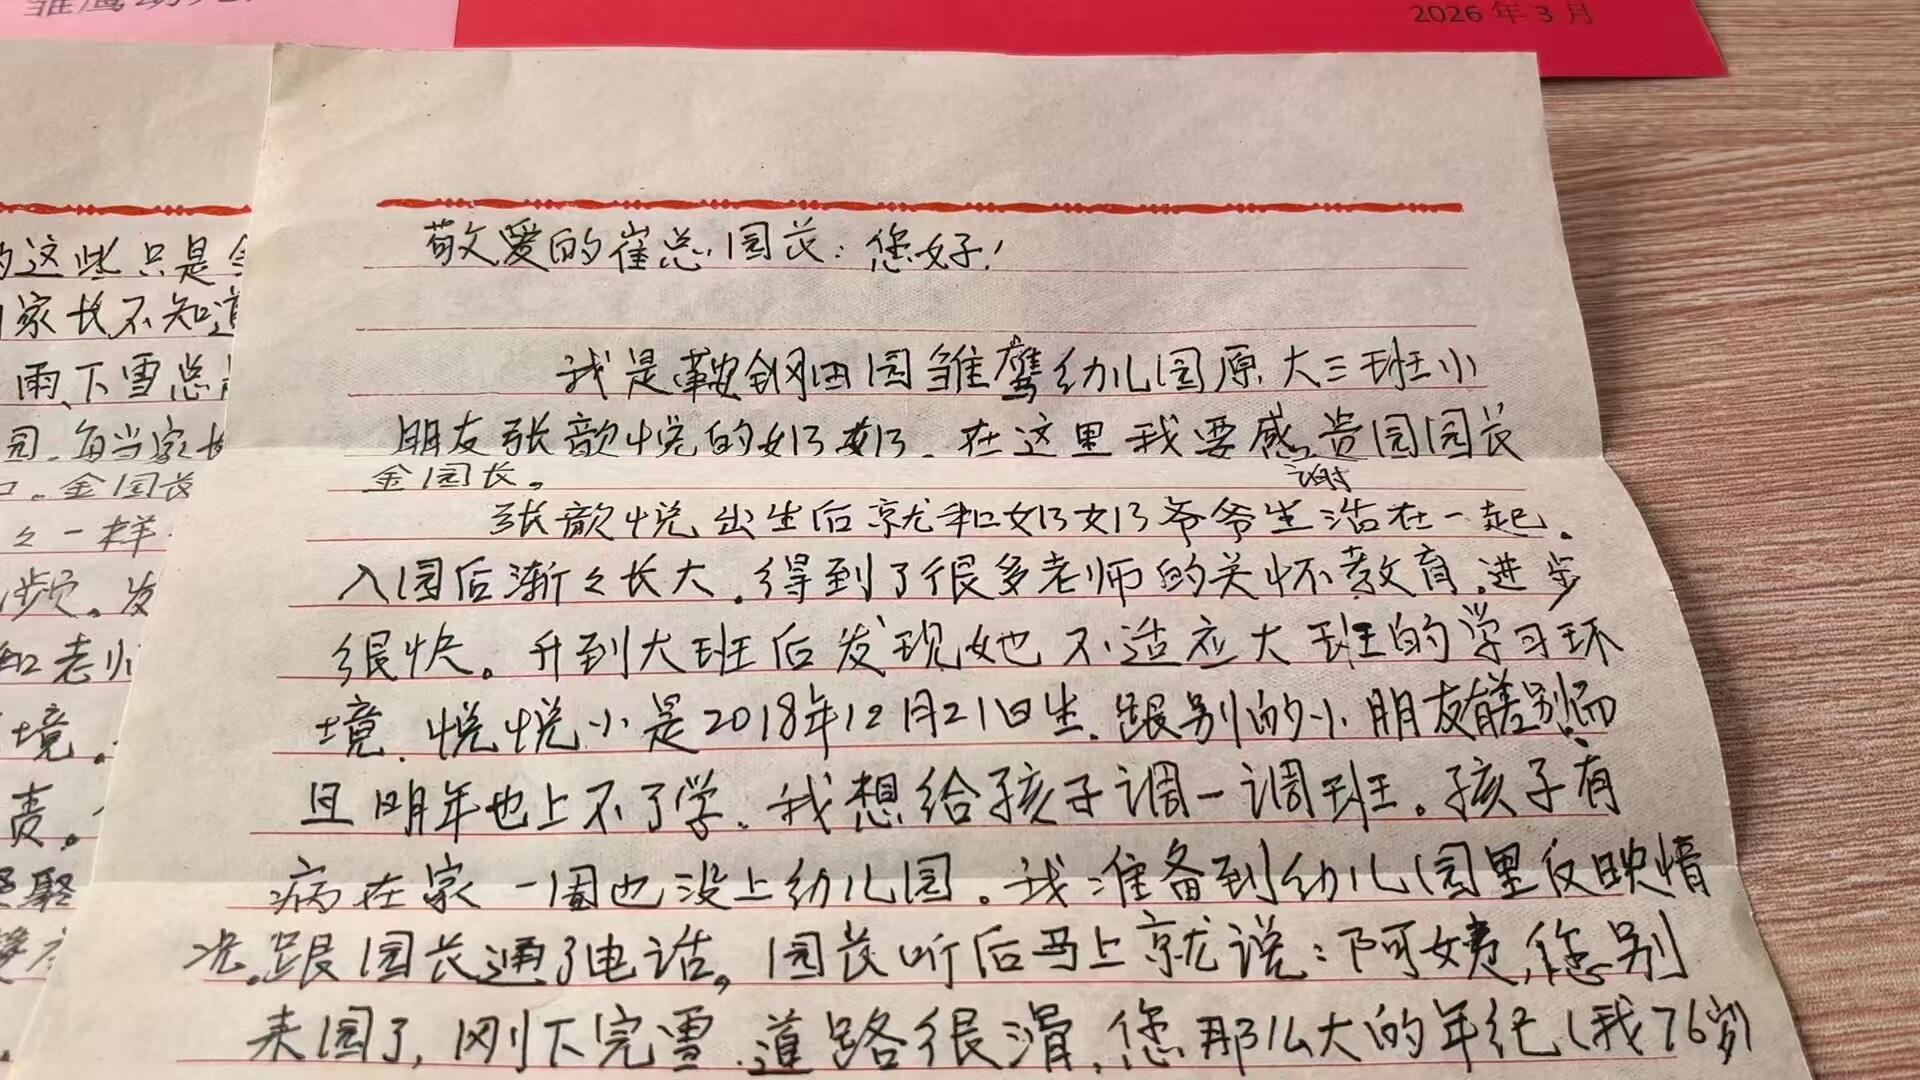 2026年3月
敬爱的崔总、园长：您好！
我是鞍钢田园雏鹰幼儿园原大三班小
朋友张歆悦的奶奶。在这里我要感谢贵园园长
金园长。
张歆悦出生后就和奶奶爷爷生活在一起。
入园后渐々长大。得到了很多老师的关怀教育。进步
很快。升到大班后发现她不适应大班的学习环
境。悦悦小是2018年12月21日生。跟别的小朋友有差别而
且明年也上不了学。我想给孩子调一调班。孩子有
病在家一周也没上幼儿园。我准备到幼儿园里反映情
况。跟园长通了电话。园长听后马上就说：阿姨您别
来园了，刚下完雪道路很滑，您那么大的年纪（我76岁）
的这些只是
家长不知道
雨、下雪总
园。每当家长
金园长
々一样
频。发
和老师
境。
责。
聚